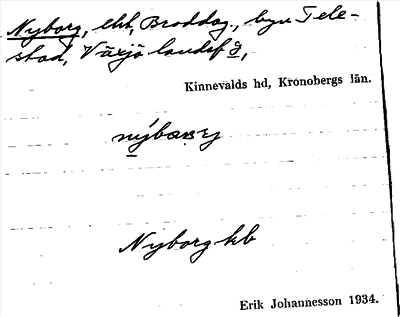 Nyborg, lht, Broddag., byn Tele-
stad, Växjö landsf ö,
Kinnevalds hd, Kronobergs län.
Nyborg kb
Erik Johannesson 1934.